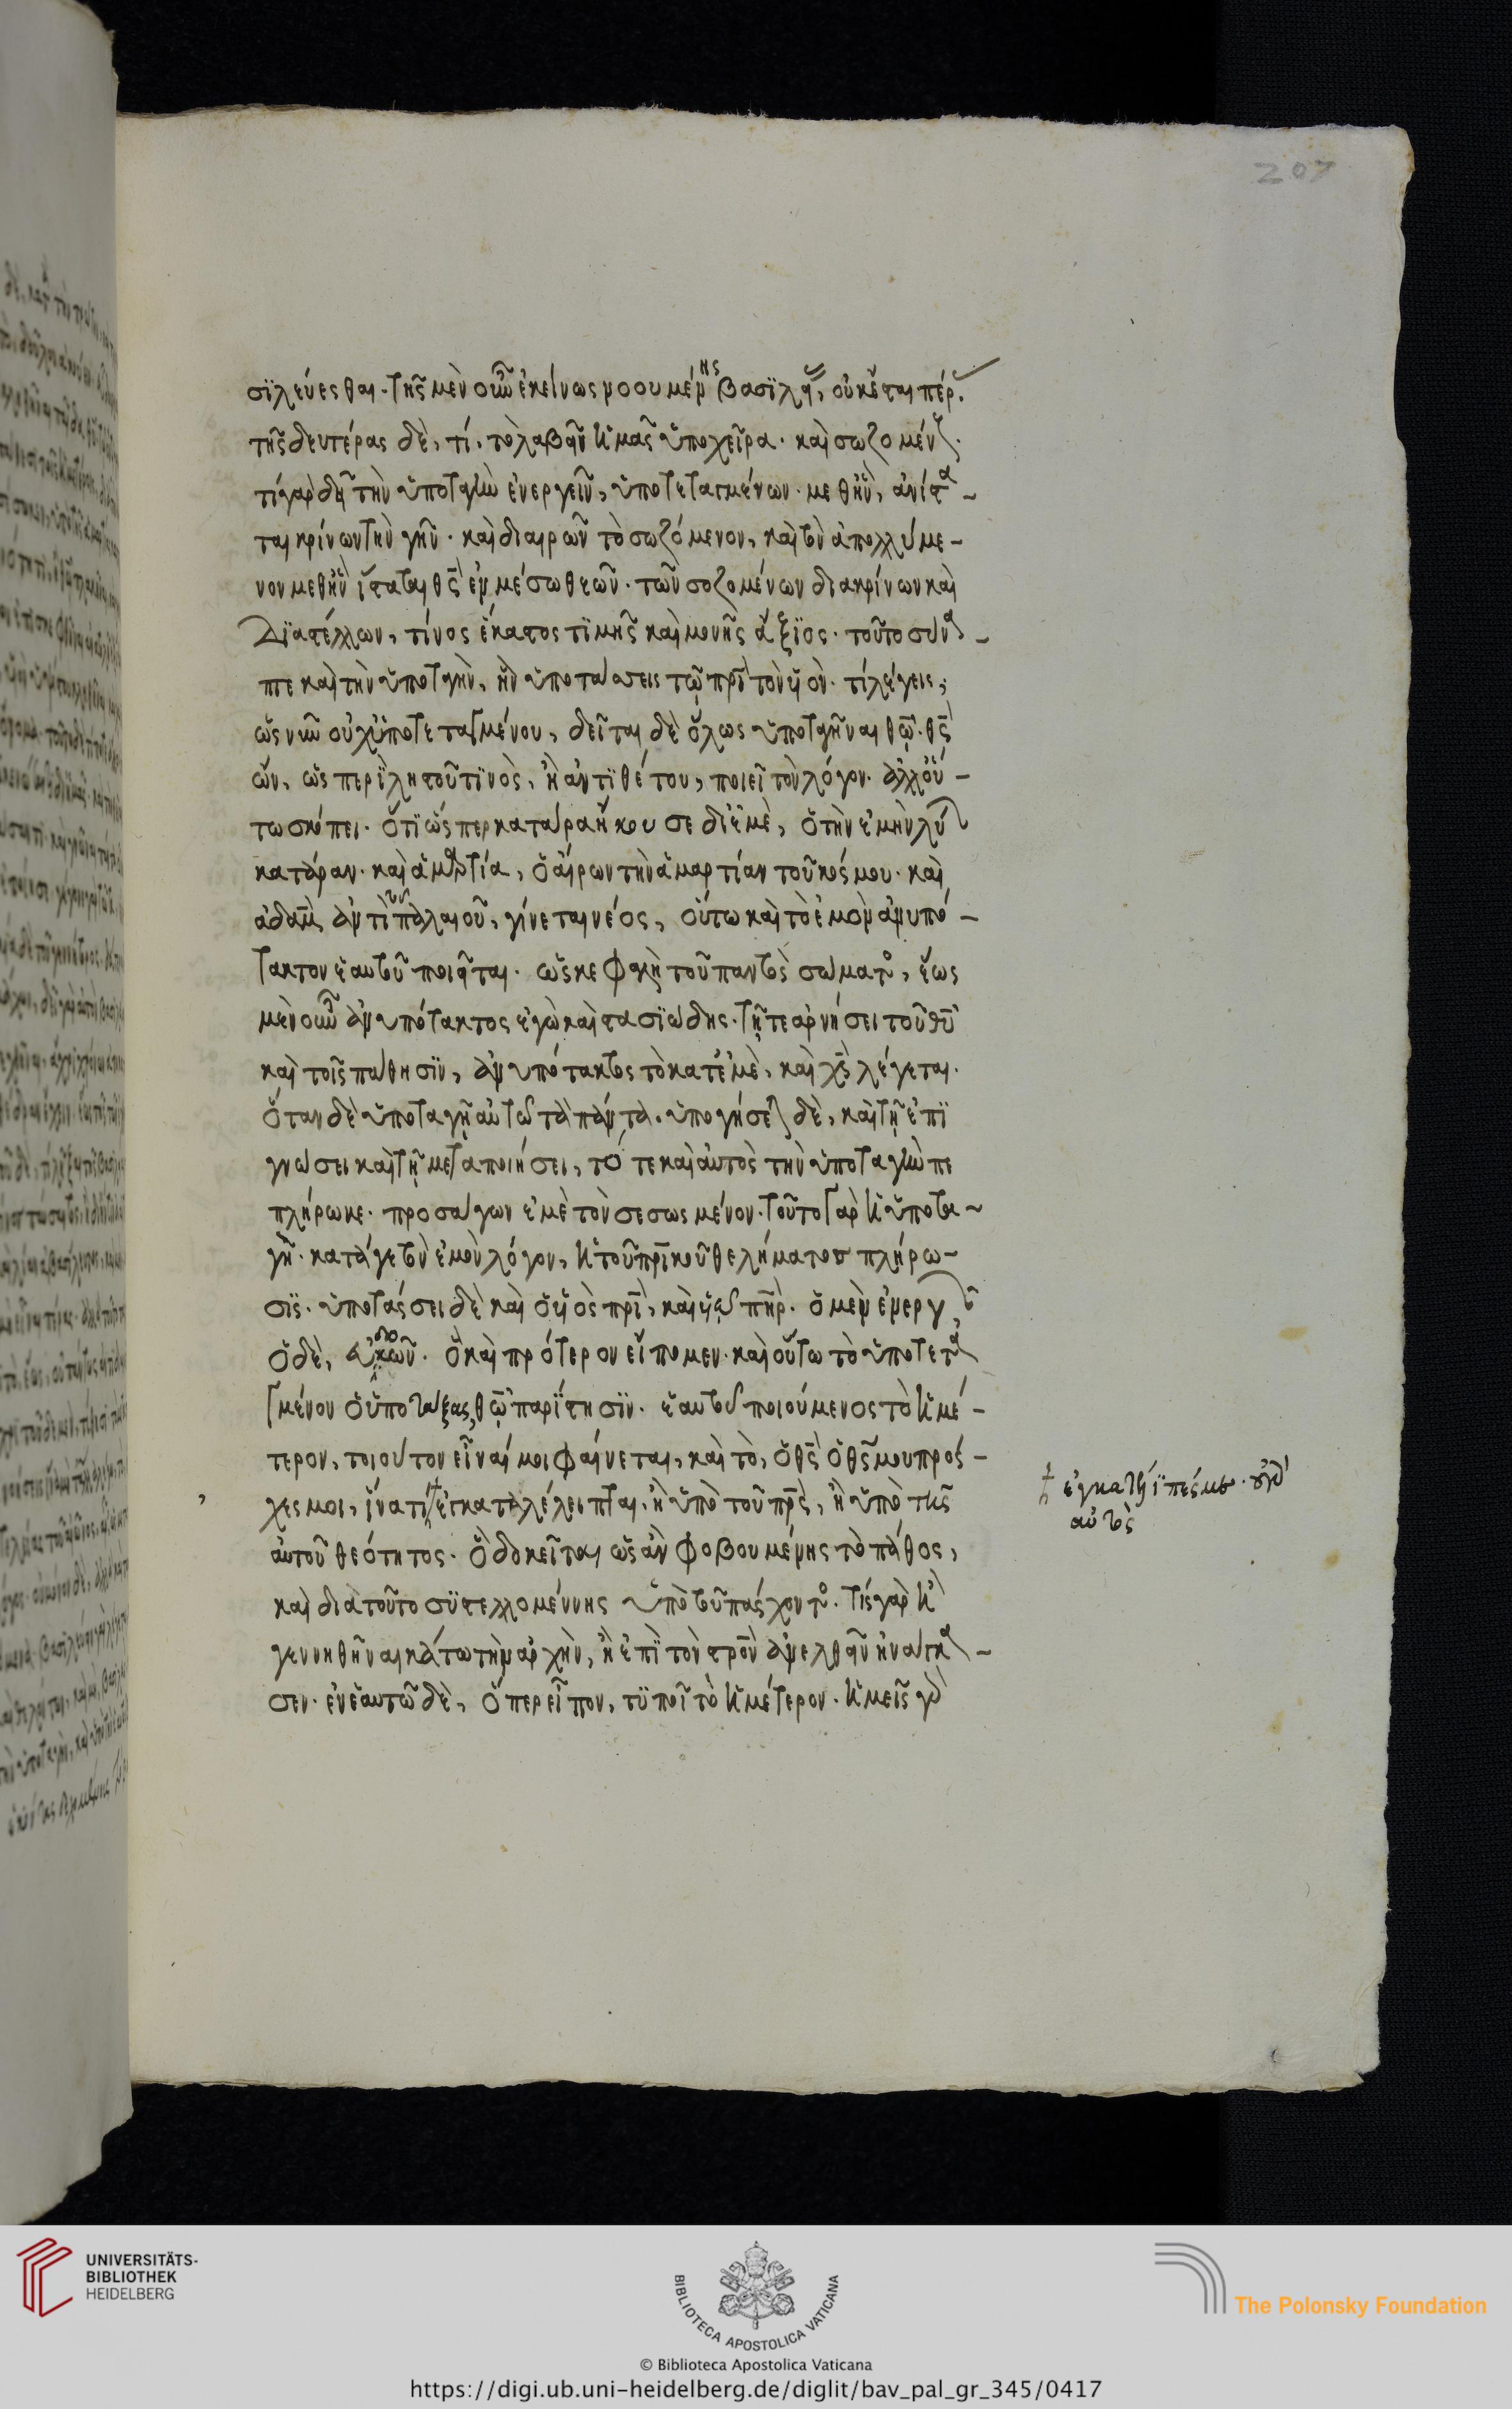 207
σϊλεύεσθαι. τῆς μὲν οὖν ἐκείνως νοουμένης βασϊλείας, οὐκ ἔσται πέρας.
τῆς δευτέρας δὲ, τί. τὸ λαβεῖν ἡμᾶς ὑποχεῖρα. καὶ σωζομένους.
τί γὰρ δεῖ τὴν ὑποταγὴν ἐνεργεῖν, ὑποτεταγμένων. μεθὴν, ἀνίστα –
ται κρίνων τὴν γῆν. καὶ διαιρῶν τὸ σωζόμενον, καὶ τὸν ἀπολλύμε –
νον μεθὴν ἵσταται θς ἐν μέσω θεῶν. τῶν σοζομένων διακρίνων καὶ
Διαστέλλων, τίνος ἕκαστος τϊμῆς καὶ μονῆς ἄξϊος. τοῦτο σύνα –
πτε καὶ τὴν ὑποταγὴν, ἣν ὑποτάσσεις τῶ πρι τὸν υἱόν. τί λέγεις;
ὡς νῦν οὐχ ὑποτεταγμένου, δεῖται δὲ ὅλως ὑποταγῆναι θῶ. θς
ὢν, ὡς περὶ λῃστοῦ τϊνὸς, ἢ ἀντϊθέτου, ποιεῖ τὸν λόγον. ἀλλ' οὕ –
τω σκόπει. ὅτϊ ὥσπερ κατάρα ἤκουσε δι' ἐμὲ, ὁ τὴν ἐμὴν λύων
κατάραν. καὶ ἁμαρτία, ὁ αἴρων τὴν ἁμαρτίαν τοῦ κόσμου. καὶ
ἀδαμ ἀντὶ τοῦ παλαιοῦ, γίνεται νέος, οὕτω καὶ τὸ ἐμὸν ἀνυπό –
τακτον ἑαυτοῦ ποιεῖται. ὡς κεφαλὴ τοῦ παντὸς σώματος, ἕως
μὲν οὖν ἀνυπότακτος ἐγὼ καὶ στασϊώδης. τῇ τε ἀρνήσει τοῦ θυ
καὶ τοῖς πάθησϊν, ἀνυπότακτος τὸ κατ' ἐμὲ, καὶ χς λέγεται.
Ὅταν δὲ ὑποταγῇ αὐτῶ τὰ πάντα. ὑπογήσεται δὲ, καὶ τῇ ἐπϊ
γνώσει καὶ τῇ μεταποιήσει, τότε καὶ αὐτὸς τὴν ὑποταγὴν πε
πλήρωκε. προσάγων ἐμὲ τὸν σεσωσμένον. τοῦτο γὰρ ἡ ὑποτα ~
γὴ. κατάγε τὸν ἐμὸν λόγον, ἡ τοῦ πρικοῦ θελήματος πλήρω –
σϊς. ὑποτάσσει δὲ καὶ ὁ υἱὸς πρι, καὶ υἱῶ πηρ. ὁ μὲν ἐνεργῶν
ὁ δὲ, εὐδοκῶν. ὃ καὶ πρότερον εἴπομεν. καὶ οὕτω τὸ ὑποτετα
γμένον ὁ ὑποτάξας, θῶ παρίστησϊν. ἑαυτοῦ ποιούμενος τὸ ἡμέ –
τερον, τοιοῦτον εἶναί μοι φαίνεται, καὶ τὸ, ὁ θς ὁ θς μου πρόσ –
χες μοι, ἵνατί ἐγκαταλέλειπται, ἢ ὑπὸ τοῦ πρς, ἢ ὑπὸ τῆς
αὐτοῦ θεότητος. ὃ δοκεῖ τισϊ ὡς ἂν φοβουμένης τὸ πάθος,
καὶ διὰ τοῦτο συστελλομέννης ὑπὸ τοῦ πάσχοντος. τίς γὰρ ἢ
γεννηθῆναι κάτω τὴν ἀρχὴν, ἢ ἐπϊ τὸν στρον ἀνελθεῖν ἠνάγκα –
σεν. ἐν ἑαυτῶ δὲ, ὅπερ εἶπον, τϋποῖ τὸ ἡμέτερον. ἡμεῖς γὰρ
ἐγκατέλϊπές με. οὐ γὰρ
αὐτὸς
UNIVERSITÄTS-
BIBLIOTHEK
HEIDELBERG
BIBLIOTECA APOSTOLICA VATICANA
The Polonsky Foundation
© Biblioteca Apostolica Vaticana
https://digi.ub.uni-heidelberg.de/diglit/bav_pal_gr_345/0417